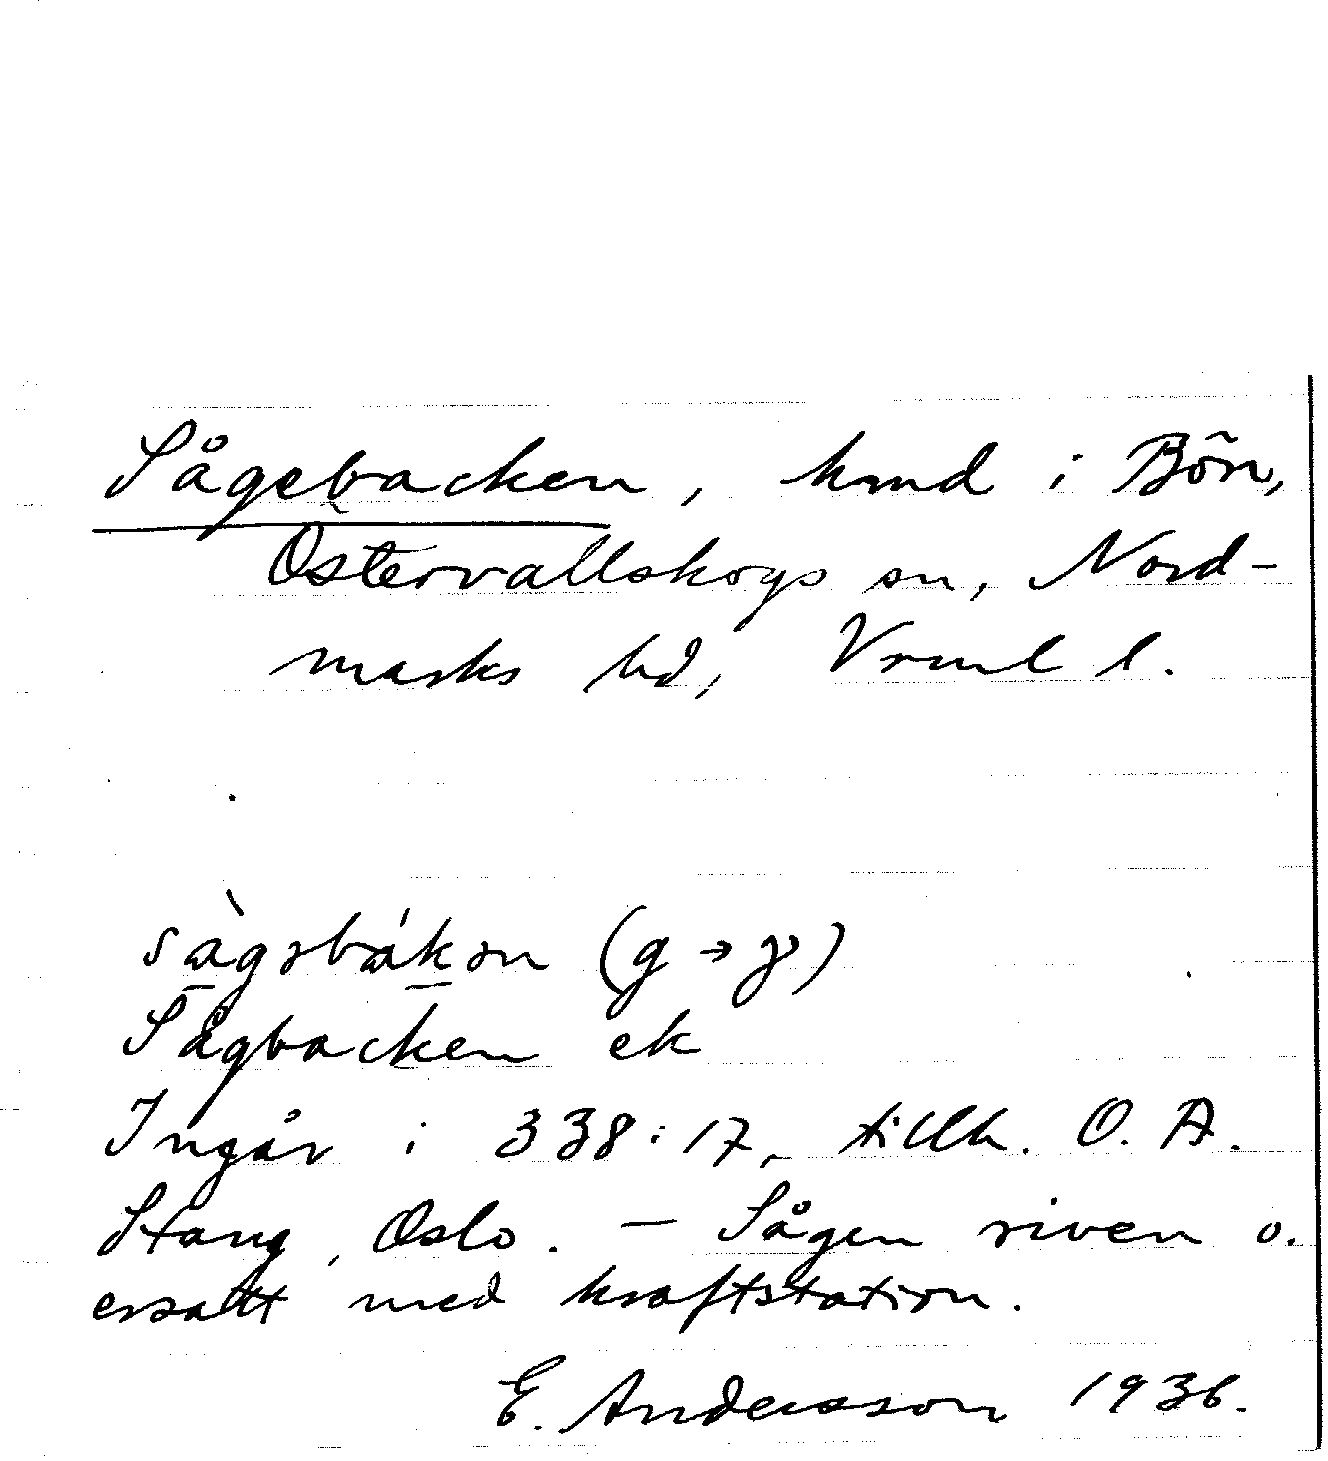 Sågebacken, hmd i Bön,
Östervallskogs sn, Nord-
marks hd, Vrml l.
(g → γ)
Sågbacken ek
Ingår i 338:17, tillh. O. A.
Stang, Oslo. – Sågen riven o.
ersatt med kraftstation.
E. Andersson 1936.